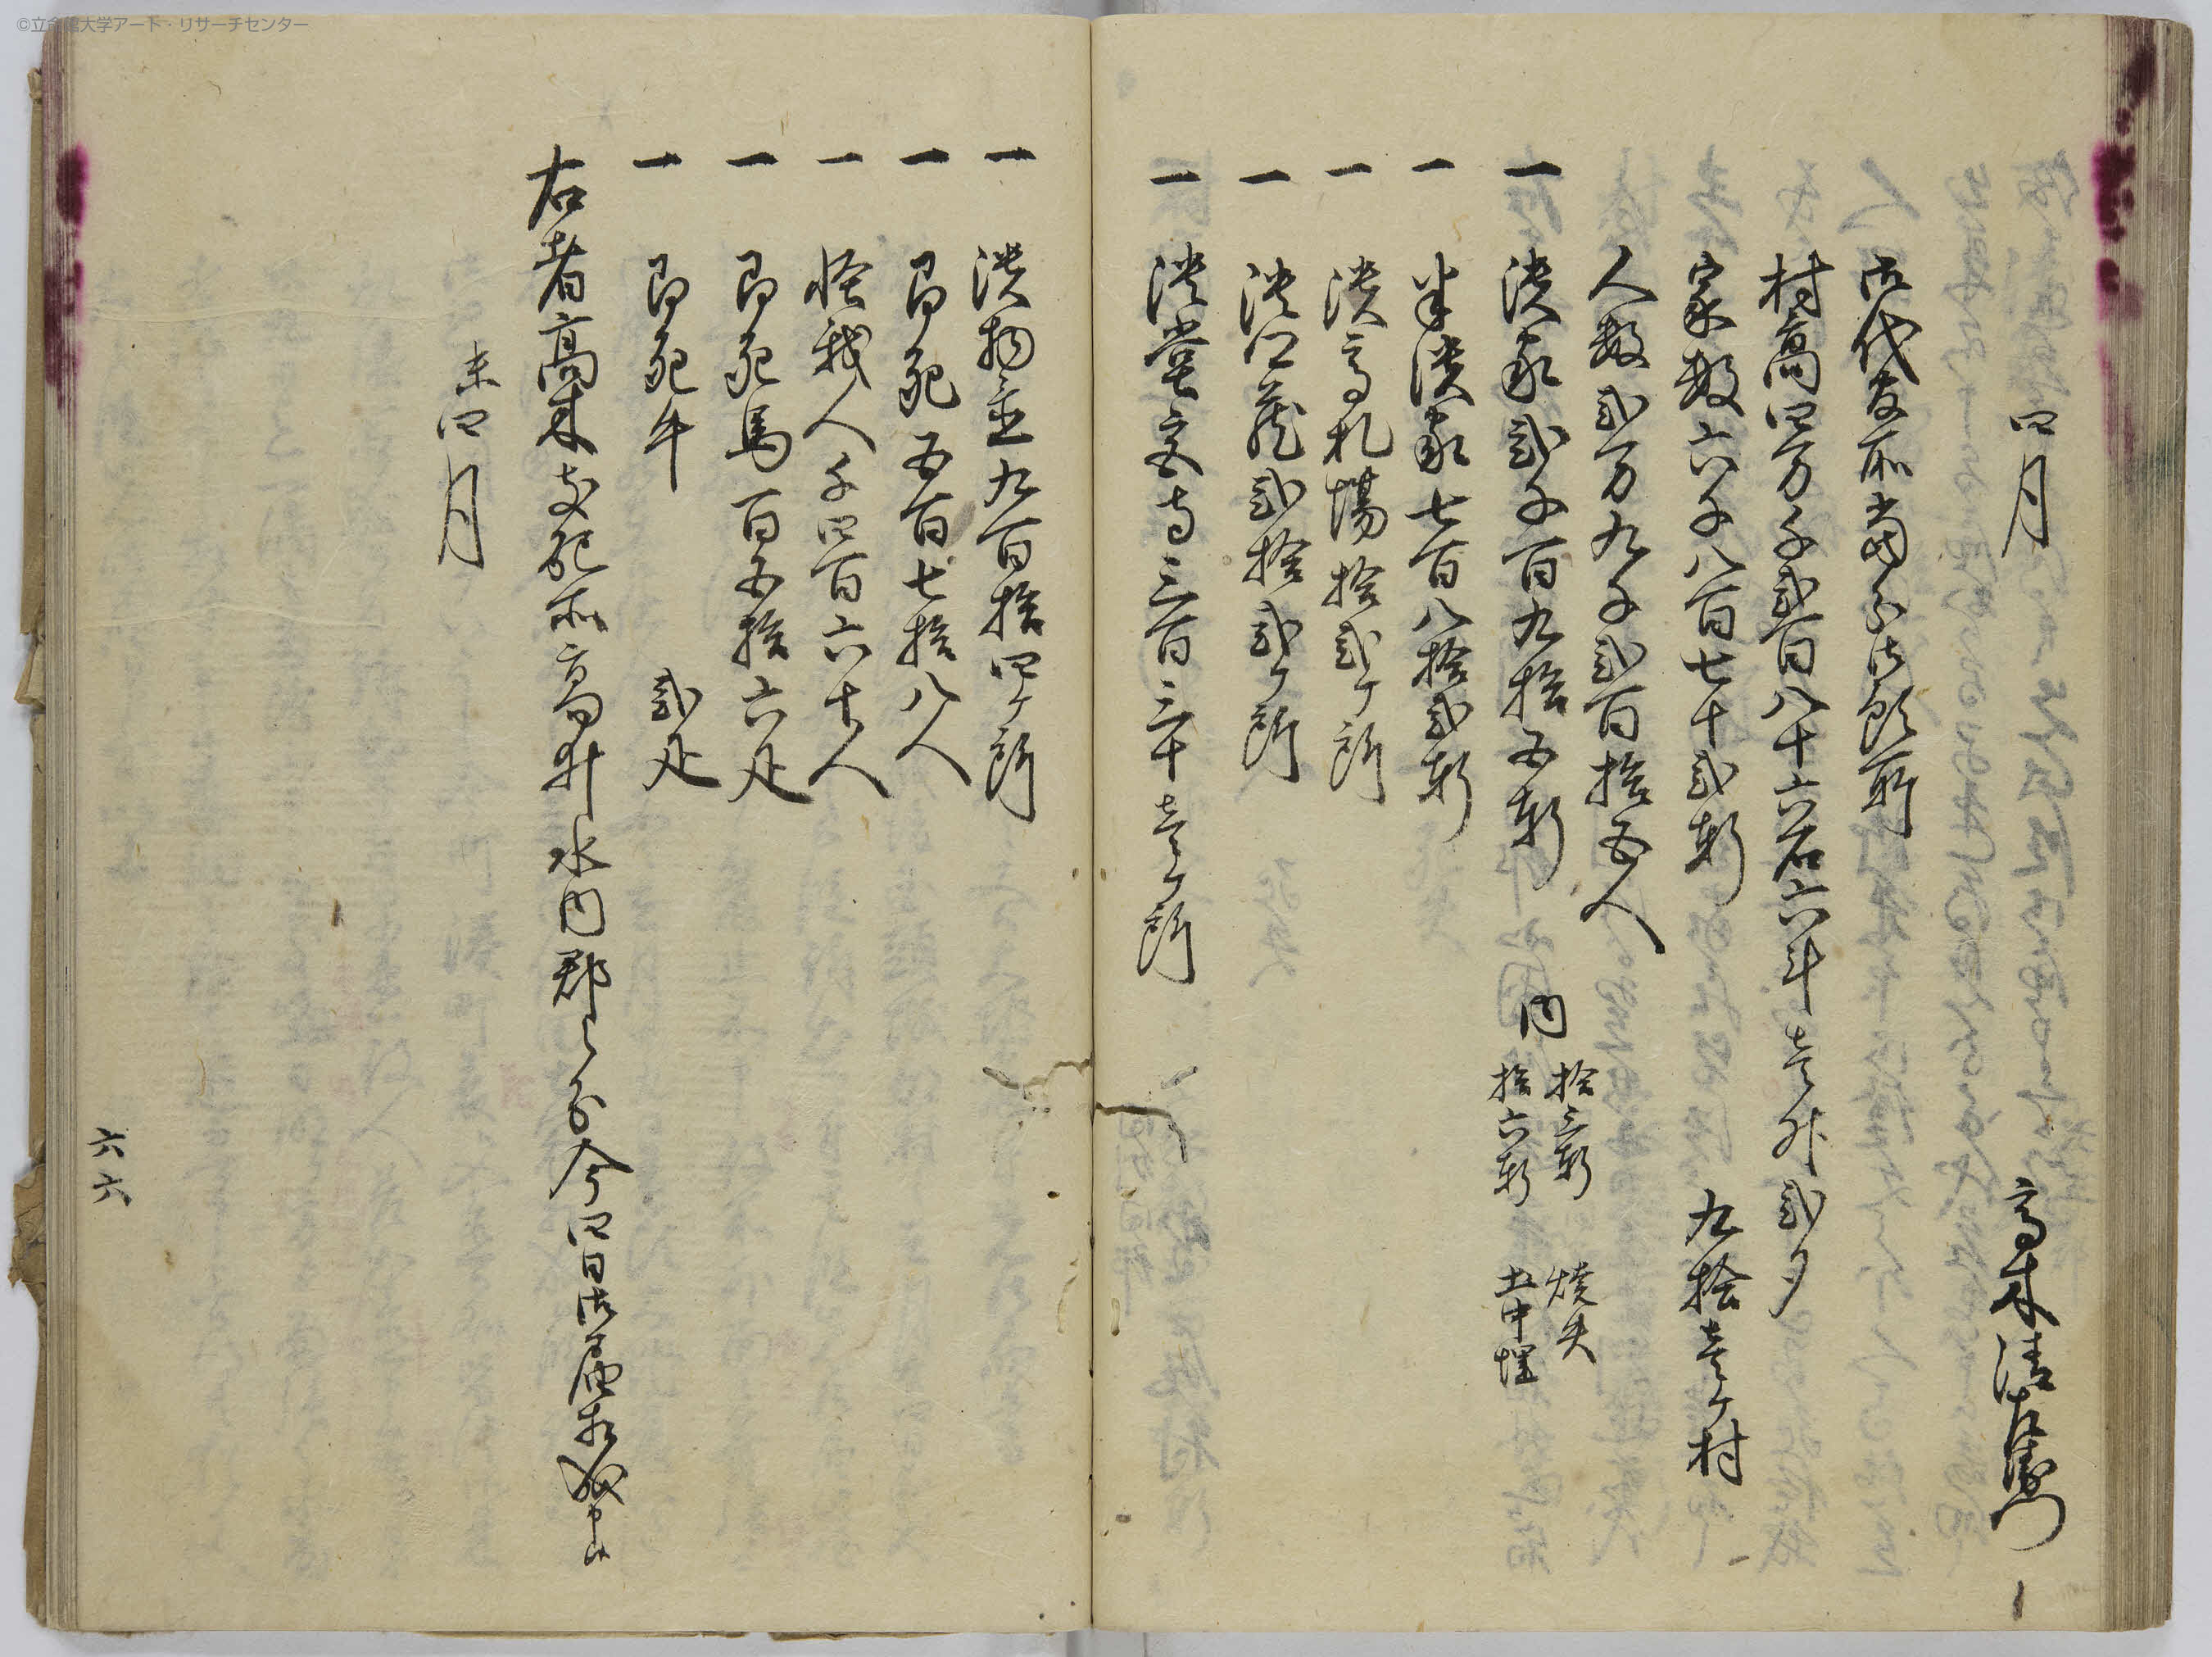 ©立命館大学アート・リサーチセンター
四月
高木清左衛門
御代官所当分御預所
村高四万千弐百八十六石六斗壱升弐夕
家数六千八百七十弐軒 九拾壱ケ村
人数弐万九千弐百拾五人
一 潰家弐千百九拾五軒 内
拾三軒 焼失
拾六軒 土中埋
一 半潰家七百八拾弐軒
一 潰高札場拾弐ケ所
一 潰郷蔵弐拾弐ケ所
一 潰堂宮寺三百三十壱ケ所
一 潰物置九百拾四ケ所
一 即死五百七拾八人
一 怪我人千四百六十人
一 即死馬百五拾六疋
一 即死牛 弐疋
右者高木支配所高井水内郡之分今四日御届相成申候
未四月
六六